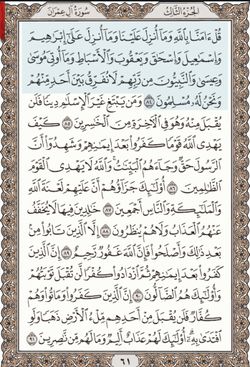 الجزء الثالث
سورة آل عمران
قُلْ ءَامَنَّا بِٱللَّهِ وَمَآ أُنزِلَ عَلَيْنَا وَمَآ أُنزِلَ عَلَىٰٓ إِبْرَٰهِيمَ
وَإِسْمَٰعِيلَ وَإِسْحَٰقَ وَيَعْقُوبَ وَٱلْأَسْبَاطِ وَمَآ أُوتِىَ مُوسَىٰ
وَعِيسَىٰ وَٱلنَّبِيُّونَ مِن رَّبِّهِمْ لَا نُفَرِّقُ بَيْنَ أَحَدٍ مِّنْهُمْ
وَنَحْنُ لَهُۥ مُسْلِمُونَ ٨٤ وَمَن يَبْتَغِ غَيْرَ ٱلْإِسْلَٰمِ دِينًا فَلَن
يُقْبَلَ مِنْهُ وَهُوَ فِى ٱلْءَاخِرَةِ مِنَ ٱلْخَٰسِرِينَ ٨٥ كَيْفَ
يَهْدِى ٱللَّهُ قَوْمًا كَفَرُوا۟ بَعْدَ إِيمَٰنِهِمْ وَشَهِدُوٓا۟ أَنَّ
ٱلرَّسُولَ حَقٌّ وَجَآءَهُمُ ٱلْبَيِّنَٰتُ وَٱللَّهُ لَا يَهْدِى ٱلْقَوْمَ
ٱلظَّٰلِمِينَ ٨٦ أُو۟لَٰٓئِكَ جَزَآؤُهُمْ أَنَّ عَلَيْهِمْ لَعْنَةَ ٱللَّهِ
وَٱلْمَلَٰٓئِكَةِ وَٱلنَّاسِ أَجْمَعِينَ ٨٧ خَٰلِدِينَ فِيهَا لَا يُخَفَّفُ
عَنْهُمُ ٱلْعَذَابُ وَلَا هُمْ يُنظَرُونَ ٨٨ إِلَّا ٱلَّذِينَ تَابُوا۟ مِنۢ
بَعْدِ ذَٰلِكَ وَأَصْلَحُوا۟ فَإِنَّ ٱللَّهَ غَفُورٌ رَّحِيمٌ ٨٩ إِنَّ ٱلَّذِينَ
كَفَرُوا۟ بَعْدَ إِيمَٰنِهِمْ ثُمَّ ٱزْدَادُوا۟ كُفْرًا لَّن تُقْبَلَ تَوْبَتُهُمْ
وَأُو۟لَٰٓئِكَ هُمُ ٱلضَّآلُّونَ ٩٠ إِنَّ ٱلَّذِينَ كَفَرُوا۟ وَمَاتُوا۟ وَهُمْ
كُفَّارٌ فَلَن يُقْبَلَ مِنْ أَحَدِهِم مِّلْءُ ٱلْأَرْضِ ذَهَبًا وَلَوِ
ٱفْتَدَىٰ بِهِۦٓ أُو۟لَٰٓئِكَ لَهُمْ عَذَابٌ أَلِيمٌ وَمَا لَهُم مِّن نَّٰصِرِينَ ٩١
٦١